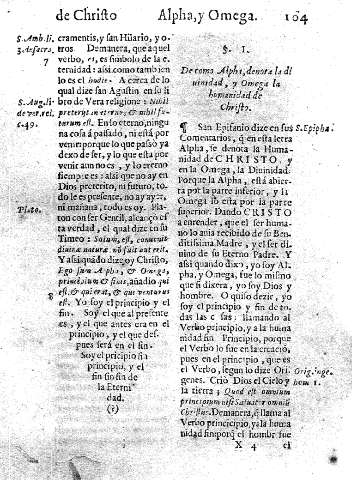 de Christo Alpha, y Omega. 104
S. Amb. li.
3. de sacra.
7
S. Aug. li
de ver. rel.
c. 49.
Plato.
8
cramentis, y san Hilario, y o-
tros Demanera, que aquel
verbo, es, es simbolo de la e-
ternidad: assi como tambien
lo es el hodie. A cerca de lo
qual dize san Agustin en su li
bro de Vera religione: Nihil
preterijt in eterno, & nihil fu-
turum est. En lo eterno, ningu
na cosa à passado, ni està por
venir: porque lo que passò ya
dexò de ser, y lo que està por
venir aun no es, y lo eterno
siempre es: assi que no ay en
Dios preterito, ni futuro, to-
do le es presente, no ay ayer,
ni mañana, todo es oy. Pla-
ton con ser Gentil, alcançò es
ta verdad, el qual dize en su
Timeo: Solum, est, convenit
divinæ naturæ, no fuit aut erit.
Y assi quãdo dize oy Christo,
Ego sum Alpha, & Omega,
principium & finis, añadio qui
est, & qui erat, & qui venturus
est. Yo soy el principio y el
fin. Soy el que al presente
es, y el que antes era en el
principio, y el que des-
pues serà en el fin.
Soy el pricipio sin
principio, y el
fin sin fin de
la Eterni
dad.
(?)
§. I.
De como Alpha, denota la di
uinidad, y Omega la
humanidad de
Christo.
¶ San Epifanio dize en sus
Comentarios, q̃ en esta letra
Alpha, se denota la Huma-
nidad de CHRISTO, y
en la Omega, la Divinidad.
Porque la Alpha, està abier
ta por la parte inferior, y la
Omega lo esta por la parte
superior. Dando CRISTO
a entender, que el ser huma-
no lo auia recibido de su Ben
ditissima Madre, y el ser divi
no de su Eterno Padre. Y
assi quando dixo, yo soy Al-
pha, y Omega, fue lo mismo
que si dixera, yo soy Dios y
hombre. O quiso dezir, yo
soy el principio y fin de to-
das las cosas: llamando al
Verbo principio, y a la huma
nidad fin. Principio, porque
el Verbo lo fue en la creaciõ,
pues en el principio, que es
el Verbo, segun lo dize Ori-
genes. Criò Dios el Cielo y
la tierra; Quod est omnium
principium nisi Salvator omniũ
Christus. Demanera, q̃ llama al
Verbo principio, y a la huma
nidad fin: porq̃ el hombre fue
S. Epipha.
Orig. in ge.
hom 1.
X 4 el